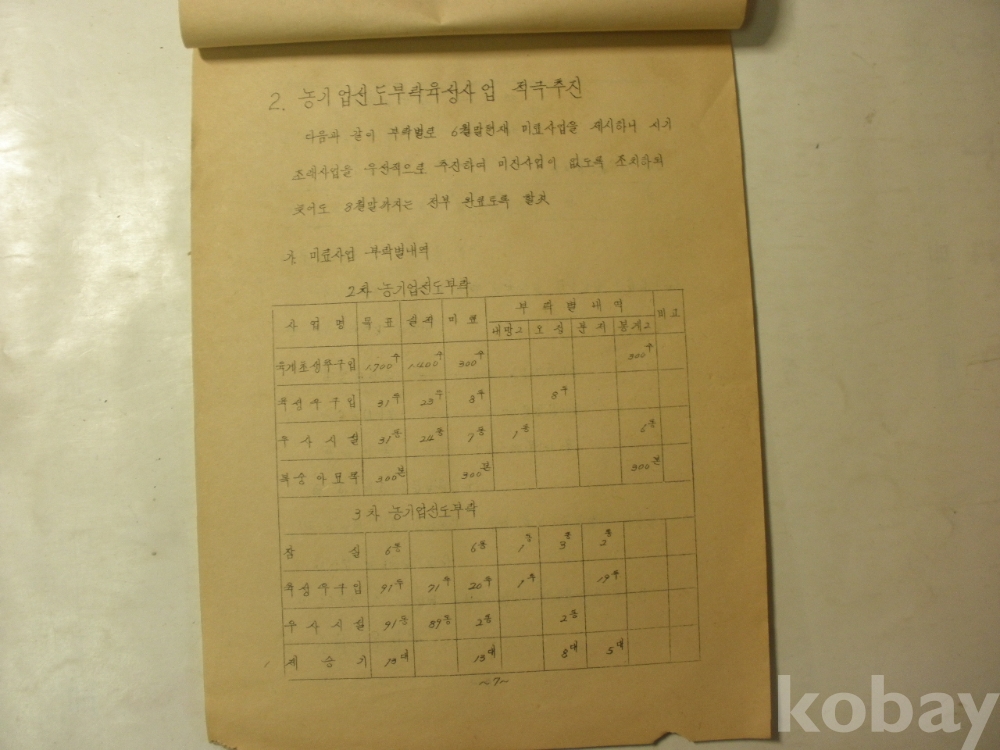 2. 농기업선도부락육성사업 적극추진
다음과 같이 부락별로 6월말현재 미료사업을 제시하니 시기
조래사업을 우선적으로 추진하여 미진사업이 없도록 조치하되
늦어도 8월말까지는 전부 완료토록 할것
가. 미료사업 부락별내역
2차 농기업선도부락
사업명 목표 실적 미료 부락별내역 비고
내말2 오심 문지 봉계2
육계포성우구입 1,700수 1,400수 300수 300수
육성우구입 31두 23두 8두 8두
우사시설 31동 24동 7동 1동 6동
복숭아묘목 300본 300본 300본
3차 농기업선도부락
잠실 6동 6동 1동 3동 2동
육성우구입 91두 71두 20두 1두 19두
우사시설 91동 89동 2동 2동
제승기 13대 13대 8대 5대
-7-
kobay